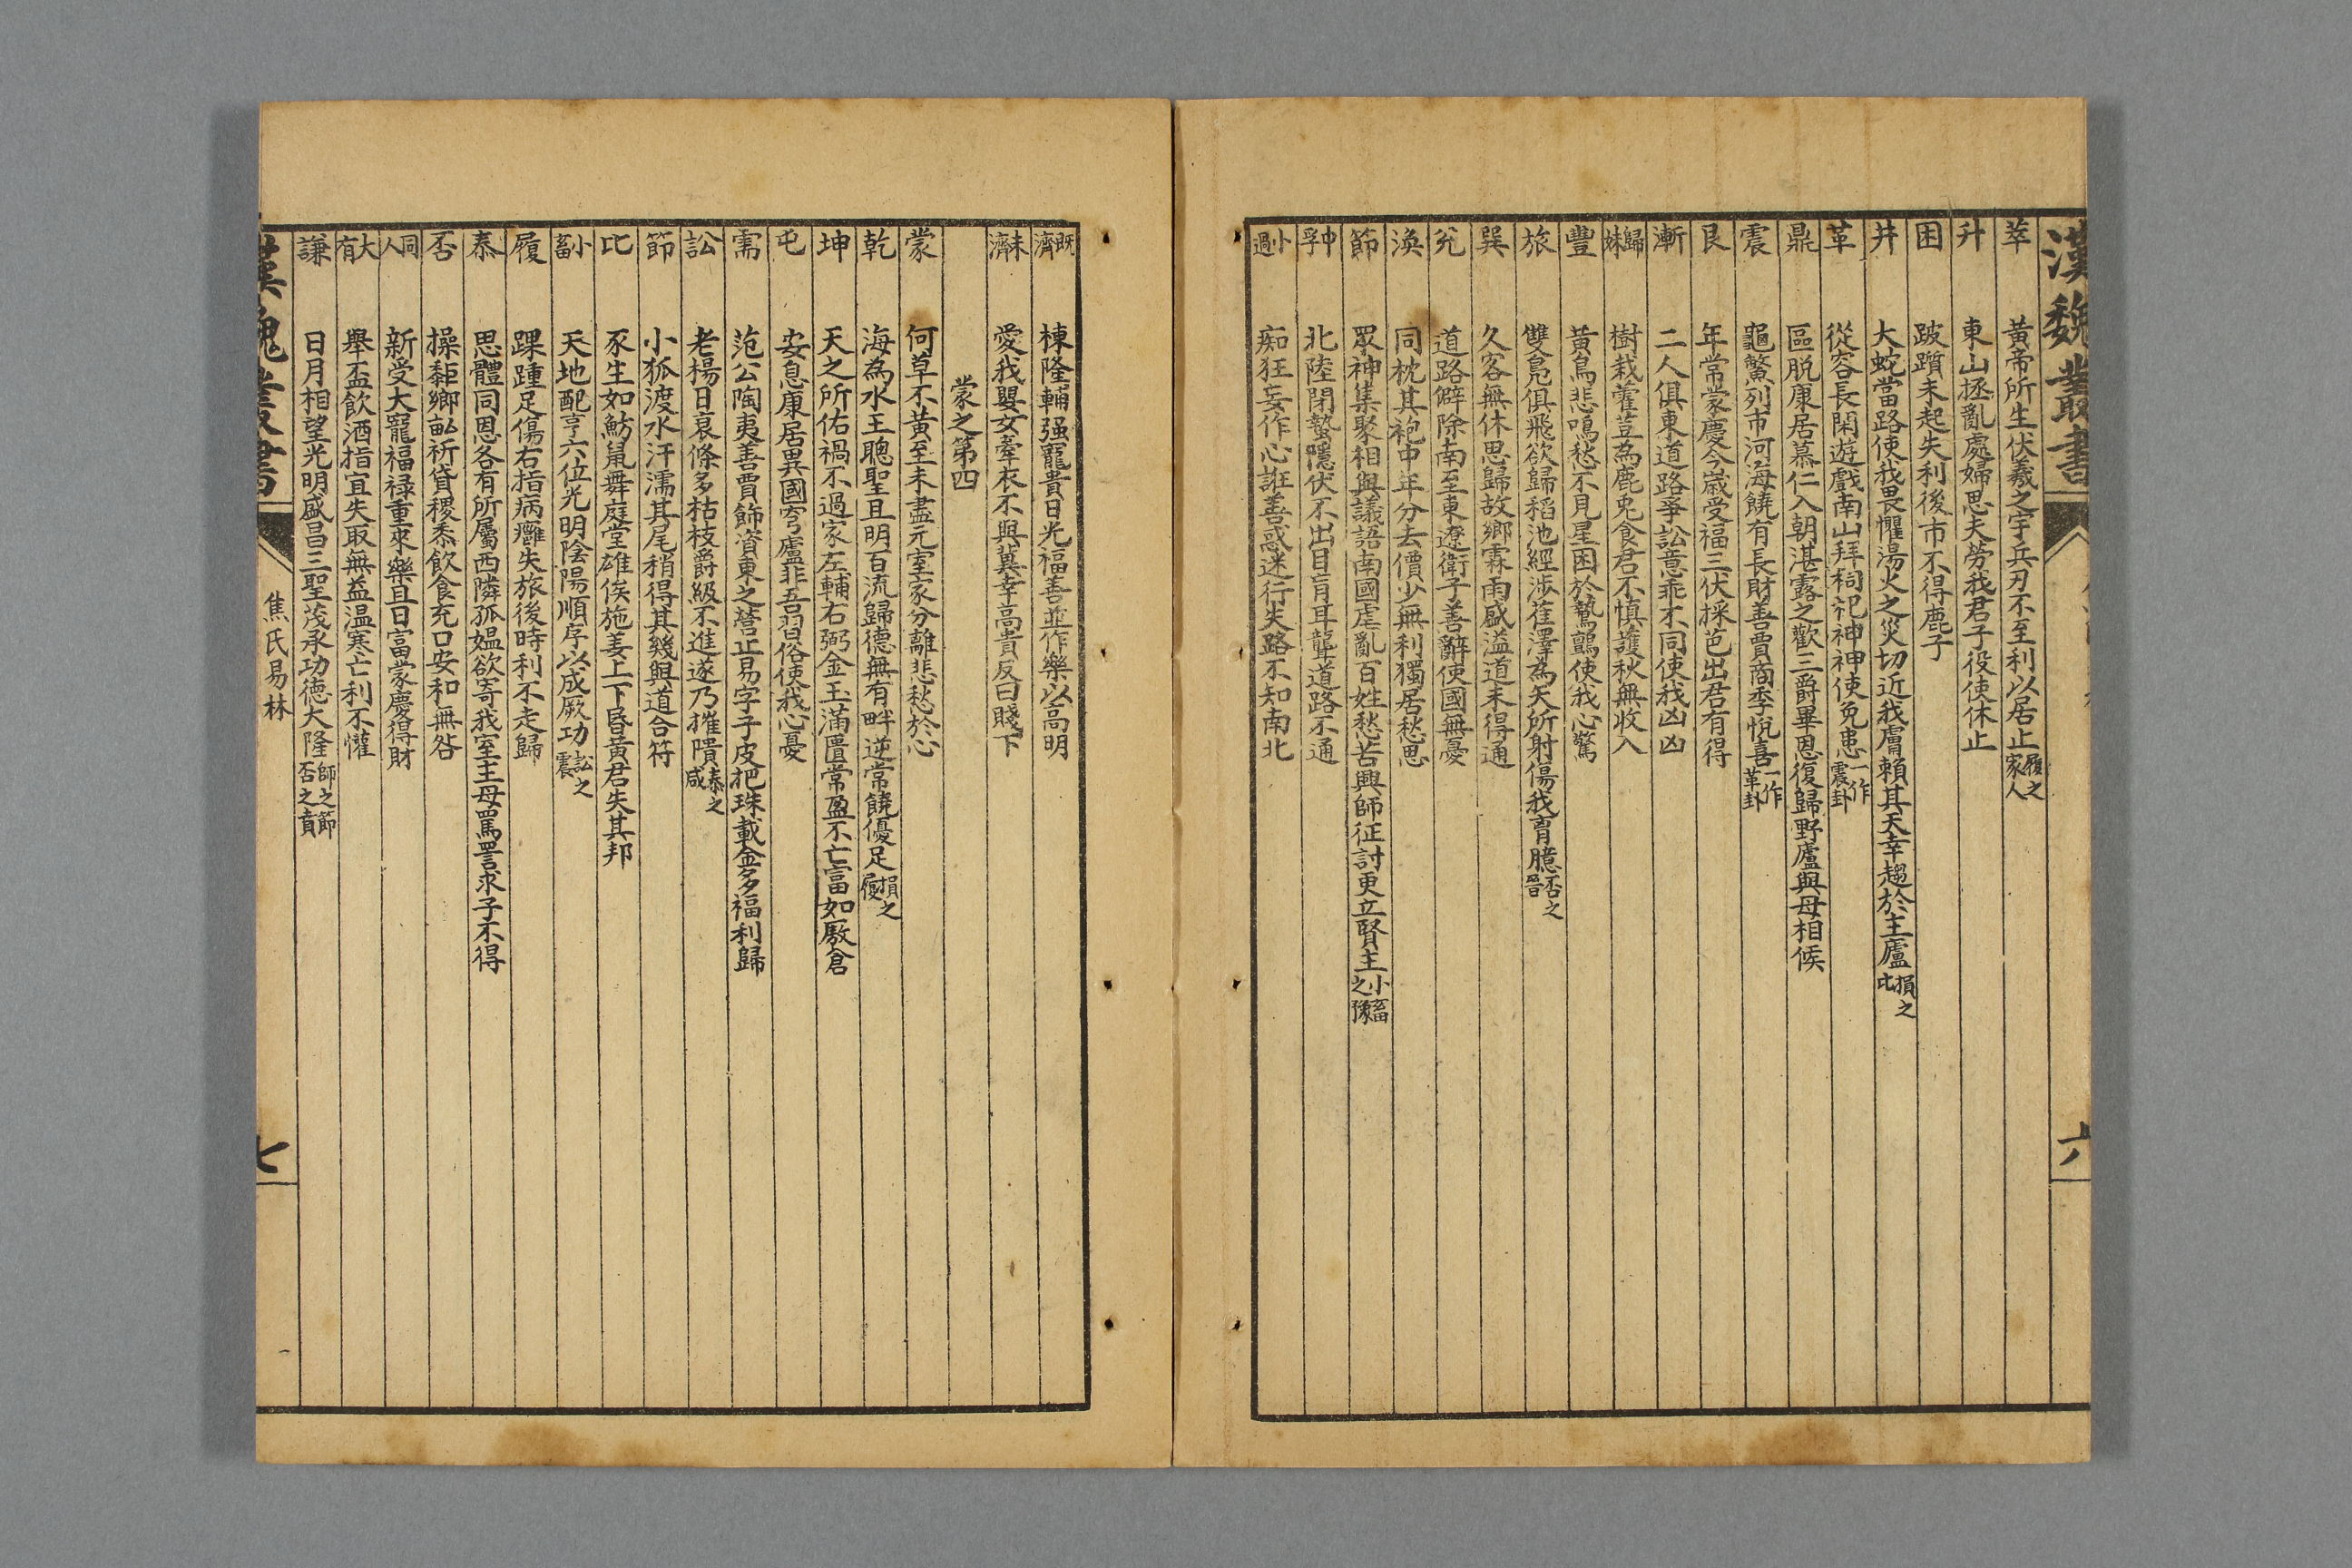 漢魏叢書
六
萃 黃帝所生伏羲之宇兵刃不至利以居止履之家人
升 東山拯亂處婦思夫勞我君子役使休止
困 跛躓未起失利後市不得鹿子
井 大蛇當路使我畏懼湯火之災切近我膚賴其天幸趨於王廬損之比
革 從容長閑遊戲南山拜祠祀神神使免患一作震卦
鼎 區脱康居慕仁入朝湛露之歡三爵畢恩復歸野廬與母相候
震 龜鱉列市河海饒有長財善賈商季悅喜一作革卦
艮 年常蒙慶今歲受福三伏採芑出君有得
漸 二人俱東道路爭訟意乖不同使我凶凶
歸妹 樹栽藿荳為鹿兎食君不慎護秋無收入
豐 黃鳥悲鳴愁不見星困於鷙鸇使我心驚
旅 雙鳧俱飛欲歸稻池經涉萑澤為矢所射傷我胷臆否之晉
巽 久客無休思歸故鄉霖雨盛溢道未得通
兌 道路僻除南至東遼衛子善辭使國無憂
渙 同枕其袍中年分去價少無利獨居愁思
節 眾神集聚相與議語南國虐亂百姓愁苦興師征討更立賢主小畜之豫
中孚 北陸閉蟄隱伏不出目盲耳聾道路不通
小過 痴狂妄作心誑善惑迷行失路不知南北
既濟 棟隆輔强寵貴日光福善並作樂以高明
未濟 愛我嬰女牽衣不與冀幸高貴反曰賤下
蒙之第四
蒙 何草不黃至未盡元室家分離悲愁於心
乾 海為水王聰聖且明百流歸德無有畔逆常饒優足損之履
坤 天之所佑禍不過家左輔右弼金玉滿匱常盈不亡富如厫倉
屯 安息康居異國穹廬非吾習俗使我心憂
需 范公陶夷善賈飾資東之營丘易字子皮把珠載金多福利歸
訟 老楊日衰條多枯枝爵級不進遂乃摧隤泰之咸
節 小狐渡水汙濡其尾稍得其幾與道合符
比 豕生如魴鼠舞庭堂雄佞施姜上下昏黃君失其邦
小畜 天地配亨六位光明陰陽順序以成厥功訟之震
履 踝踵足傷右指病癰失旅後時利不走歸
泰 思體同恩各有所屬西隣孤媼欲寄我室主母罵詈求子不得
否 操秬鄉畝祈貸稷黍飲食充口安和無咎
同人 新受大寵福祿重來樂且日富蒙慶得財
大有 舉盃飲酒指宜失取無益温寒亡利不懽
謙 日月相望光明盛昌三聖茂承功德大隆師之節否之賁
漢魏叢書
焦氏易林
七